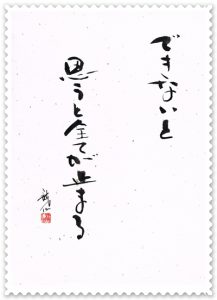 できないと
思うと全てが止まる